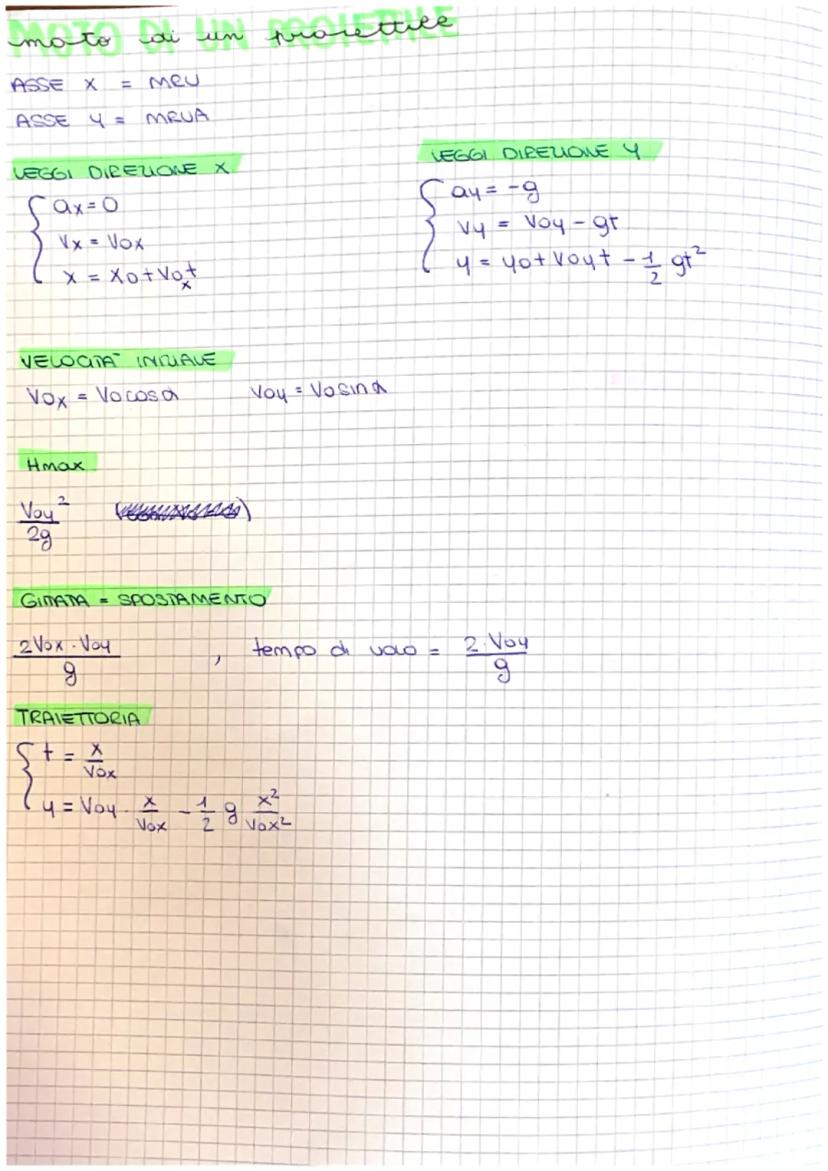 MOTO DI UN PROIETTILE
moto di un proiettile
ASSE X = MRU
ASSE Y = MRUA
LEGGI DIREZIONE X
ax = 0
Vx = Vox
x = Xo + Voxt
LEGGI DIREZIONE Y
ay = -g
Vy = Voy - gt
y = yo + Voyt - 1/2 gt²
VELOCITA' INIZIALE
Vox = Vo cos α Voy = Vo sin α
Hmax
Voy²/2g
GITTATA = SPOSTAMENTO
2Vox · Voy/g , tempo di volo = 2·Voy/g
TRAIETTORIA
t = x/Vox
y = Voy · x/Vox - 1/2 g x²/Vox²